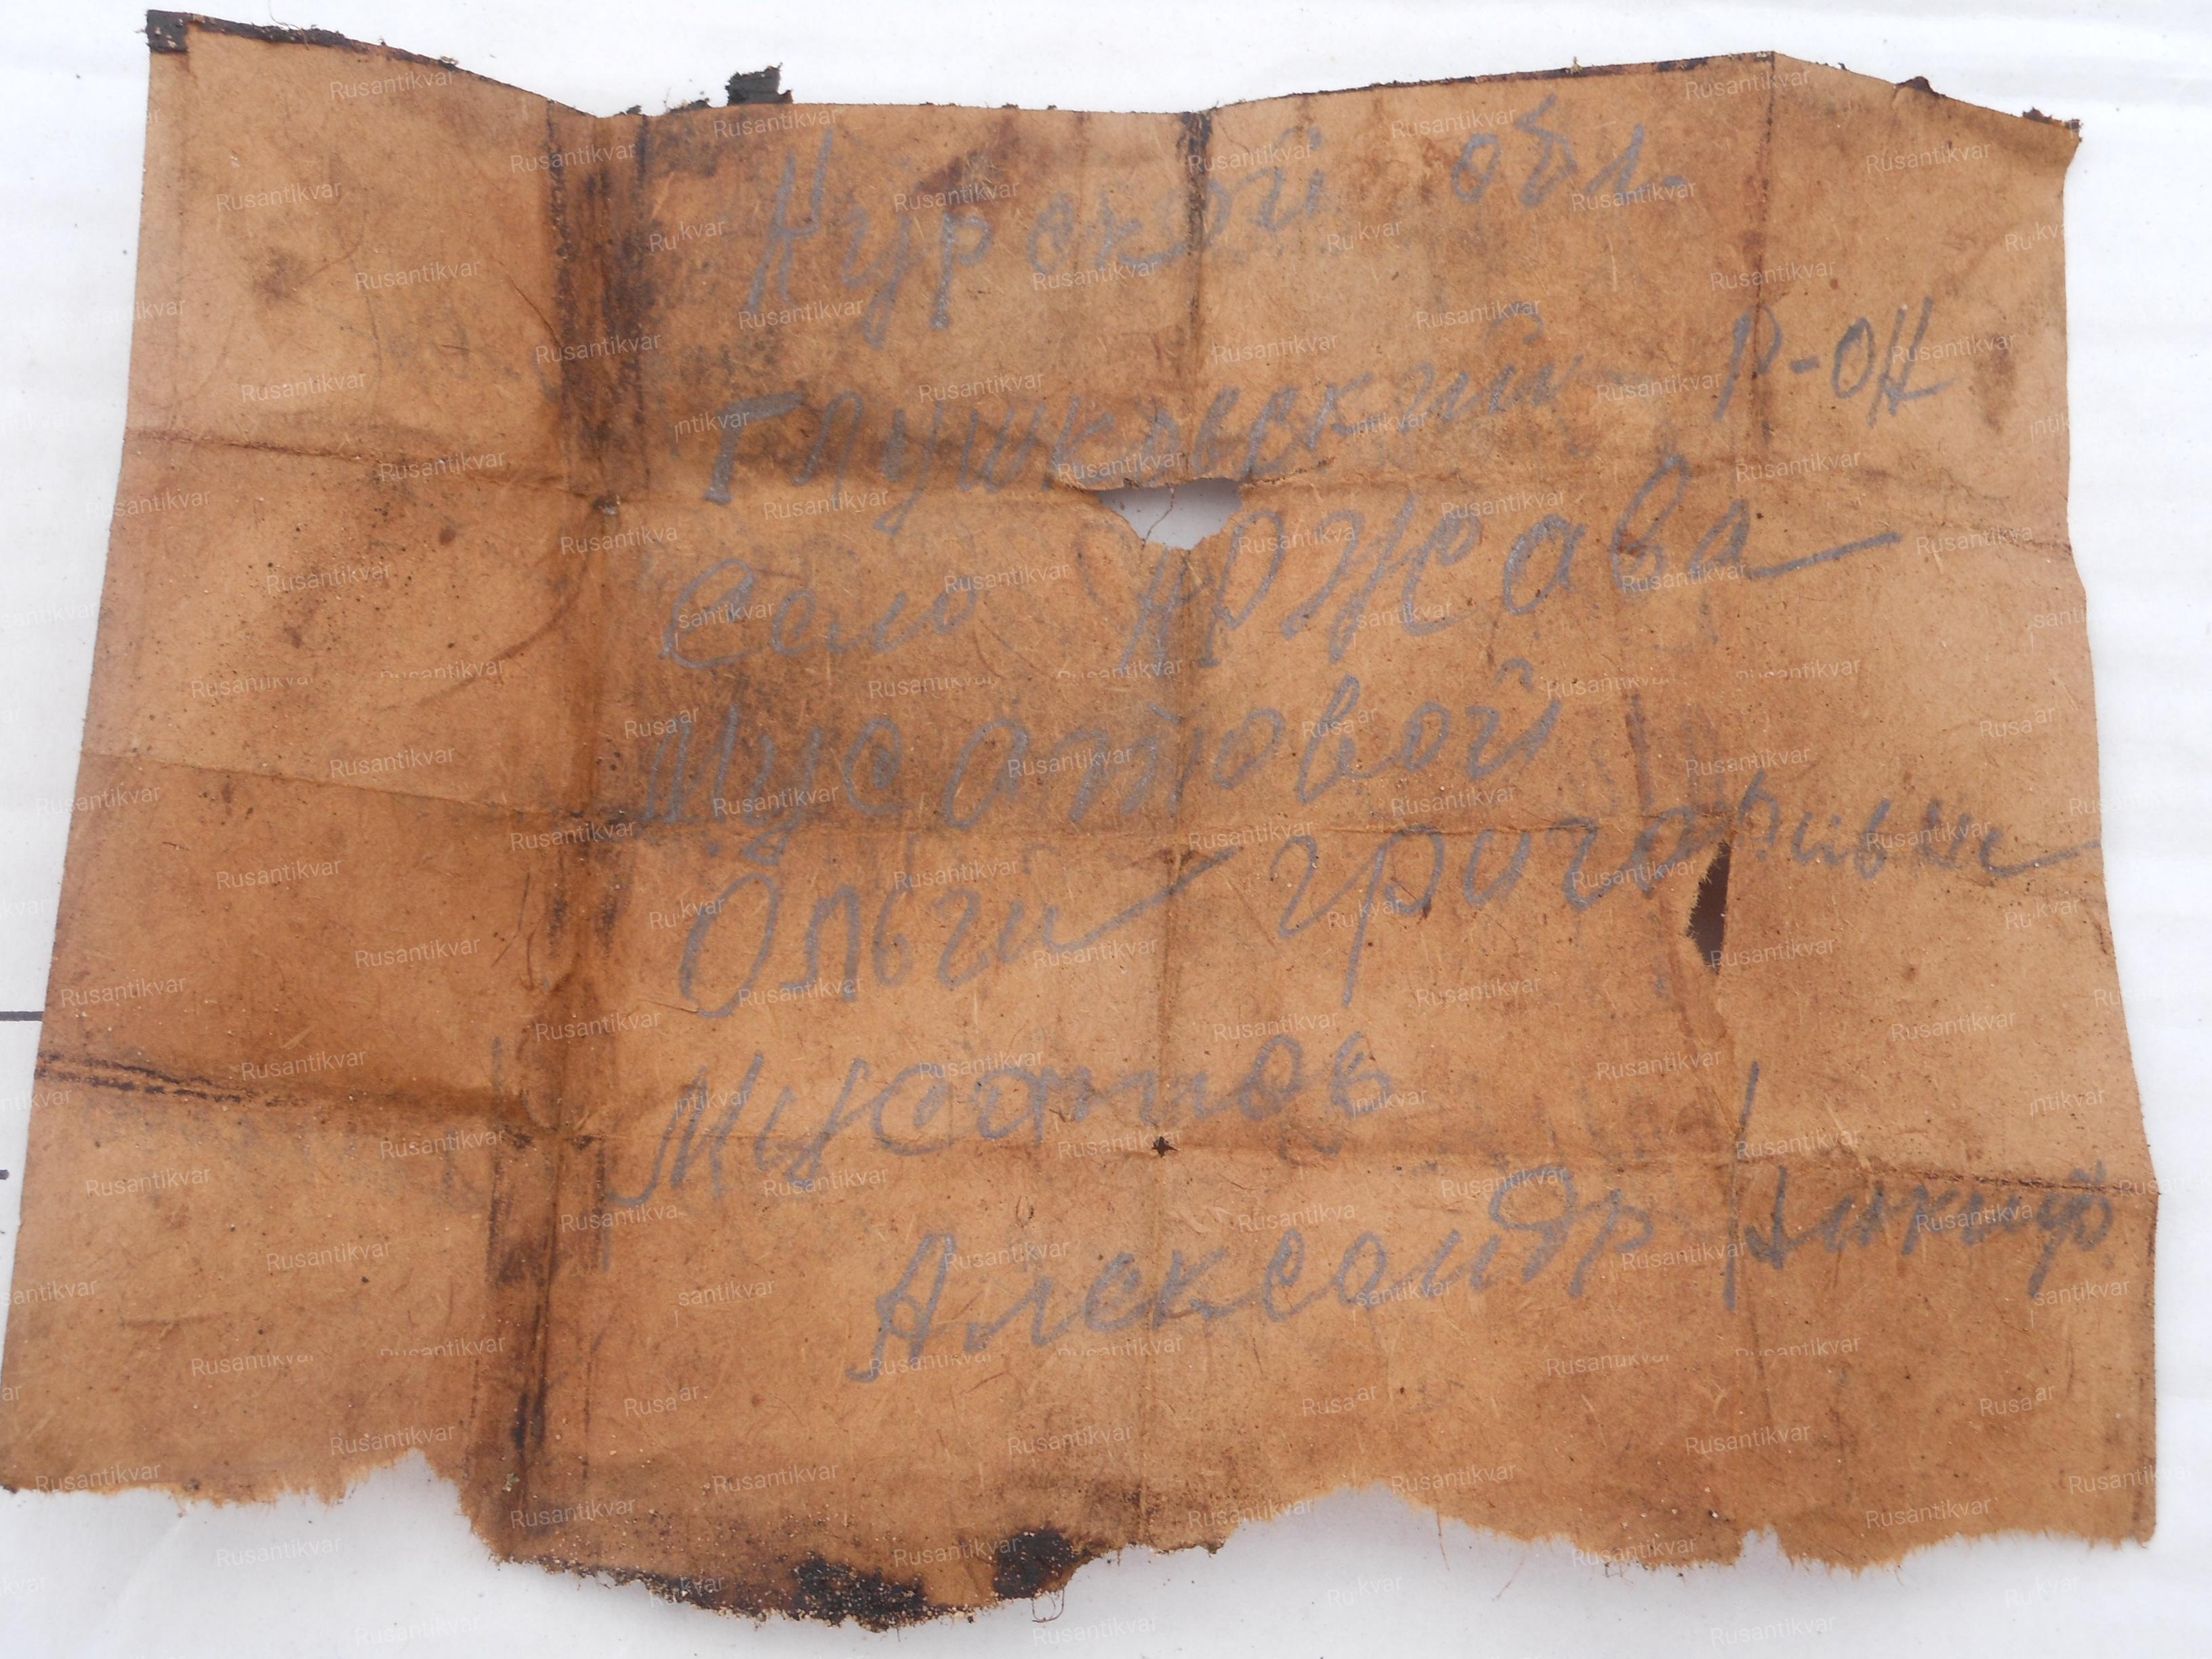 Курской обл.
Глушковский р-он
Село Аржава
Мусатовой
Ольги григоривни
Мусатов
Александр
Rusantikvar